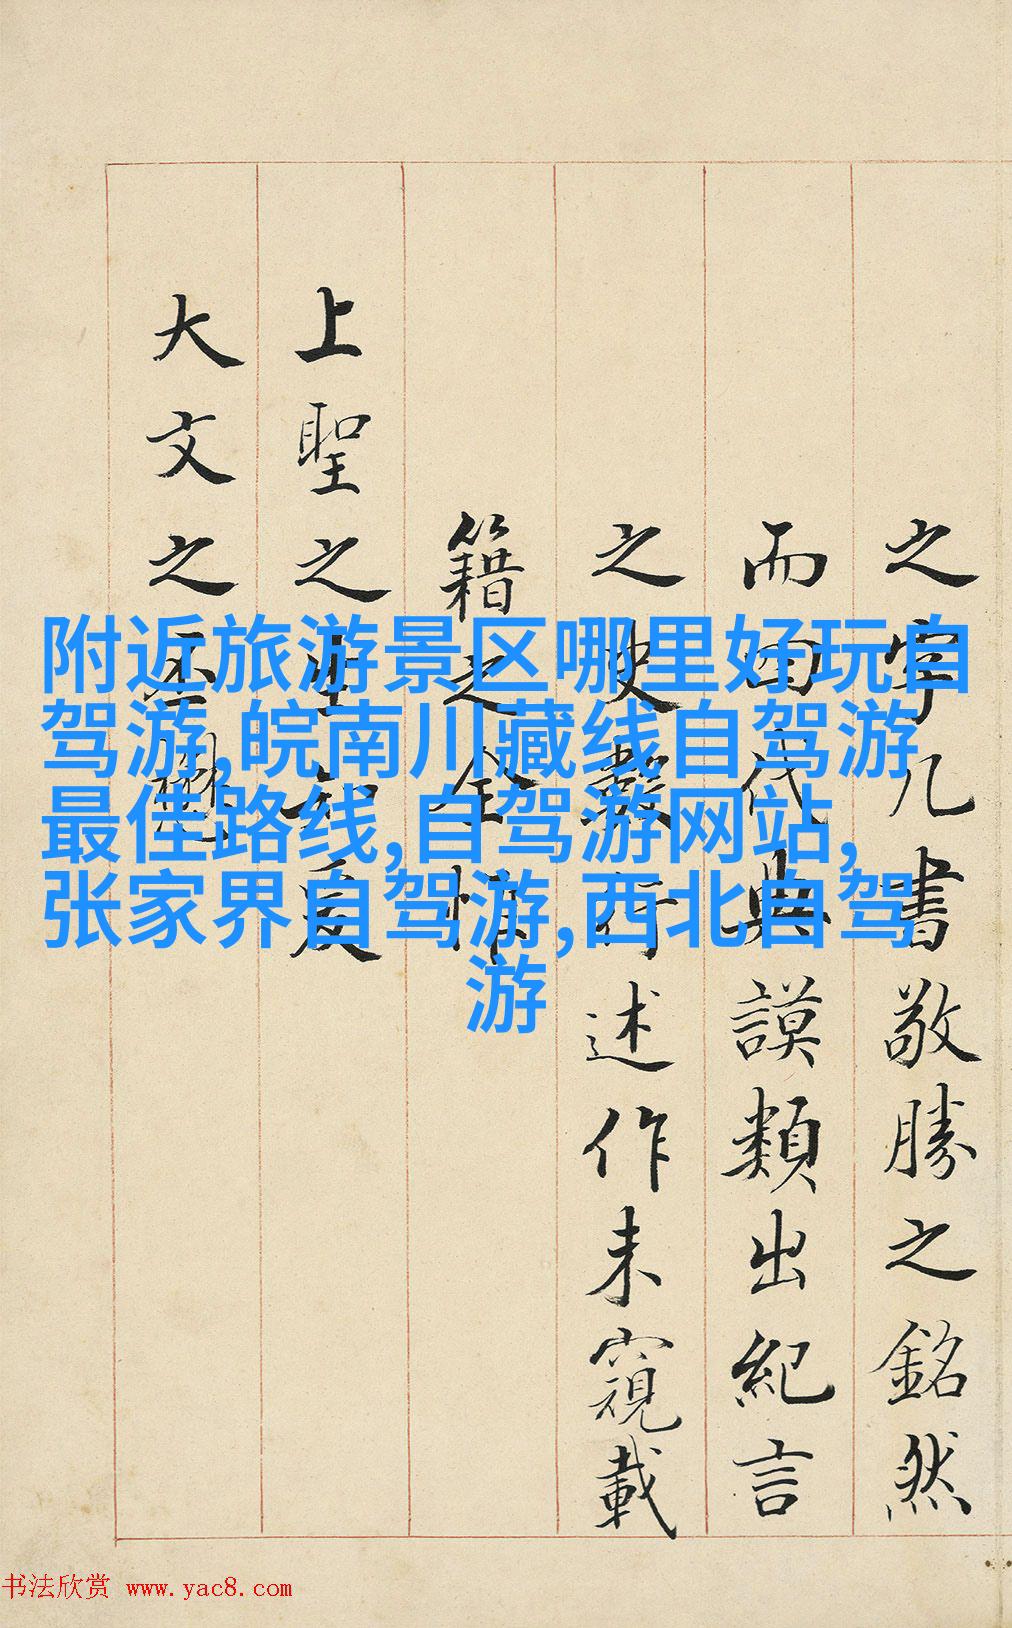 附近旅游景区哪里好玩自
驾游,皖南川藏线自驾游
最佳路线,自驾游网站,
张家界自驾游,西北自驾
游
之几書敬勝之銘然
而代典謨類出紀言
之史數行述作未窺載
籍之全惟
上聖之生知爰
大文之丕
书法欣赏 www.yac8.com